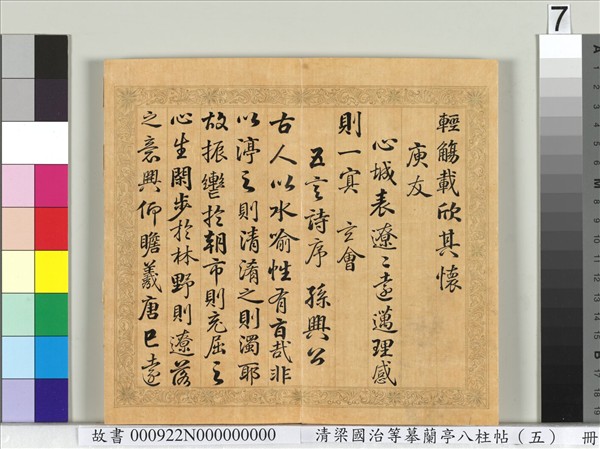 輕觴載欣其懷
庾友
心城表遼〻遠邁理感
則一寘玄會
五言詩序 孫興公
古人以水喻性有旨哉非
以渟之則清淆之則濁耶
故振轡於朝市則充屈之
心生閑步於林野則遼落
之意興仰瞻羲唐已遠
7
故書 000922N000000000 清梁國治等摹蘭亭八柱帖（五） 冊